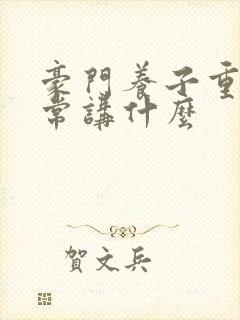 豪門養子重
常講什麼
賀文兵